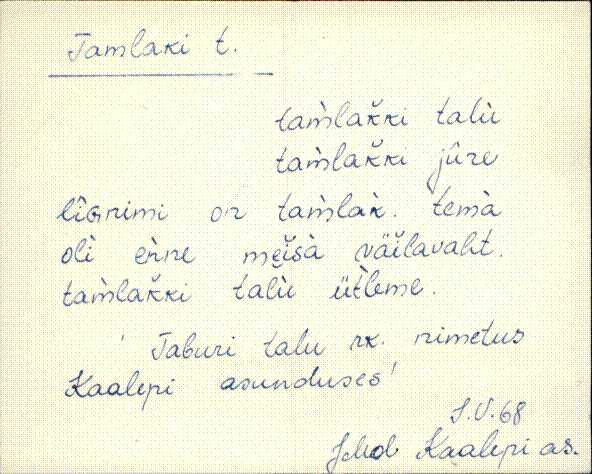 Tamlaki t.
tam̀lak̆ki talù
tam̀lak̆ki jûre
lîGnimi on tam̀lak̀. temà
olì eǹne meĭsà väĭlavaht.
tam̀lak̆ki talù üt̀leme.
' Taburi talu rk. nimetus
Kaalepi asunduses'
S.V. 68
JMd Kaalepi as.